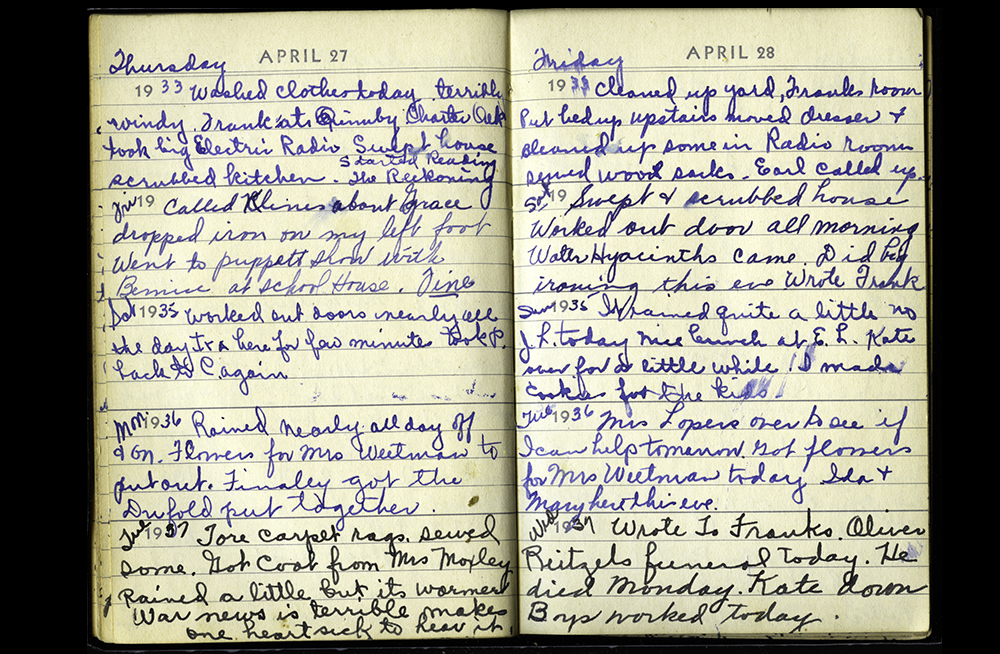 APRIL 27
Thursday
1933 Washed clothes today. terribly
windy. Frank at Quimby Charter Oak
took big Electric Radio Swept house
Started Reading
scrubbed kitchen. The Reckoning
Fri 19 Called Klines about Grace
dropped iron on my left foot
Went to puppett show with
Bernice at school House. Fine
Sat 1935 Worked out doors nearly all
the day here for few minutes Took P.
back to C. again
Mon 1936 Rained nearly all day off
& on. Flowers for Mrs Weetman to
put out. Finaley got the
Dufold put together.
Tue 1937 Tore carpet rags. sewed
some. Got Coat from Mrs Moxley
Rained a little but its warmer
War news is terrible makes
one heartsick to hear it
APRIL 28
Friday
1933 Cleaned up yard, Franks room
Put bed up upstairs moved dresser &
cleaned up some in Radio room
sewed wool sacks. Earl called up.
Sat 19 Swept & scrubbed house
Worked out door all morning
Water Hyacinths came. Did big
ironing this eve Wrote Frank
Sun 1935 It rained quite a little no
J.L. today nice lunch at E. L. Kate
over for a little while. I made
Cookies for the kids
Tue 1936 Mrs Lopers over to see if
I can help tomorrow. Got flowers
for Mrs Weetman today Ida +
Mary here this eve.
Wed 1937 Wrote To Franks. Oliver
Reitzels funeral today. He
died Monday. Kate down
Boys worked today.